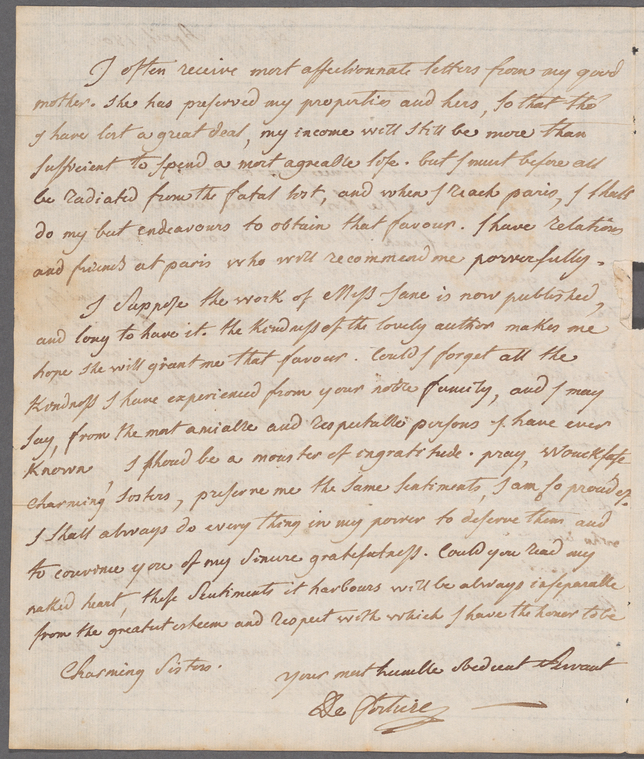 I often receive most affectionnate letters from my good
mother. She has preserved my properties and hers, so that tho'
I have lost a great deal, my income will still be more than
sufficient to spend a most agreable life. but I must before all
be radiated from the fatal list, and when I reach paris, I shall
do my best endeavours to obtain that favour. I have relations
and friends at paris who will recommend me powerfully.
I suppose the work of Miss Jane is now published,
and long to have it. the kindness of the lovely author makes me
hope she will grant me that favour. Could I forget all the
kindness I have experienced from your noble family, and I may
say, from the most amiable and respectable persons I have ever
known, I shoud be a monster of ingratitude. pray, 
charming sisters, preserve me the same sentiments, I am so proud of.
I shall always do every thing in my power to deserve them and
to convince you of my sincere gratefulness. Could you read my
naked heart, these sentiments it harbours will be always inseparable
from the greatest esteem and respect with which I have the honor to be
Charming Sisters.
your most humble obedient Servant
De